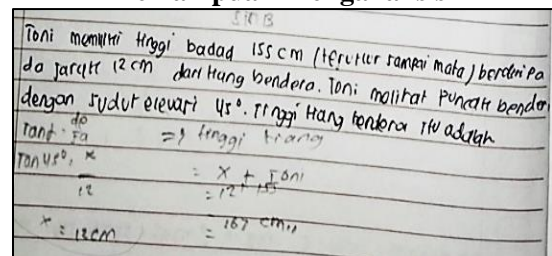 Toni memiliki tinggi badad 155 cm (terukur sampai mata) berdiri pa
da jarak 12 cm dari tiang bendera. Toni melihat puncak bender
dengan sudut elevasi 45°. Tinggi tiang bendera itu adalah
Tan = de/sa => tinggi tiang
Tan 45° = x/12 = x + Toni
= 12 + 155
x = 12 cm = 167 cm,,